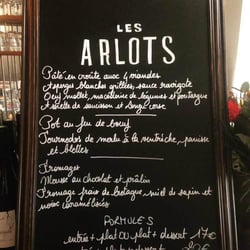 LES
ARLOTS
Pâté en croûte avec 4 viandes
Asperges blanches grillées, sauce ravigote
Oeuf mollet, macédoine de légumes et poutargue
Assiette de saucisson et
Pot au feu de boeuf
Tournedos de merlu à la ventrèche, panisse
et blettes
Fromages
Mousse au chocolat et pralin
Fromage frais de bretagne, miel de sapin et
noix caramélisées
FORMULES
entrée + plat ou plat + dessert 17€